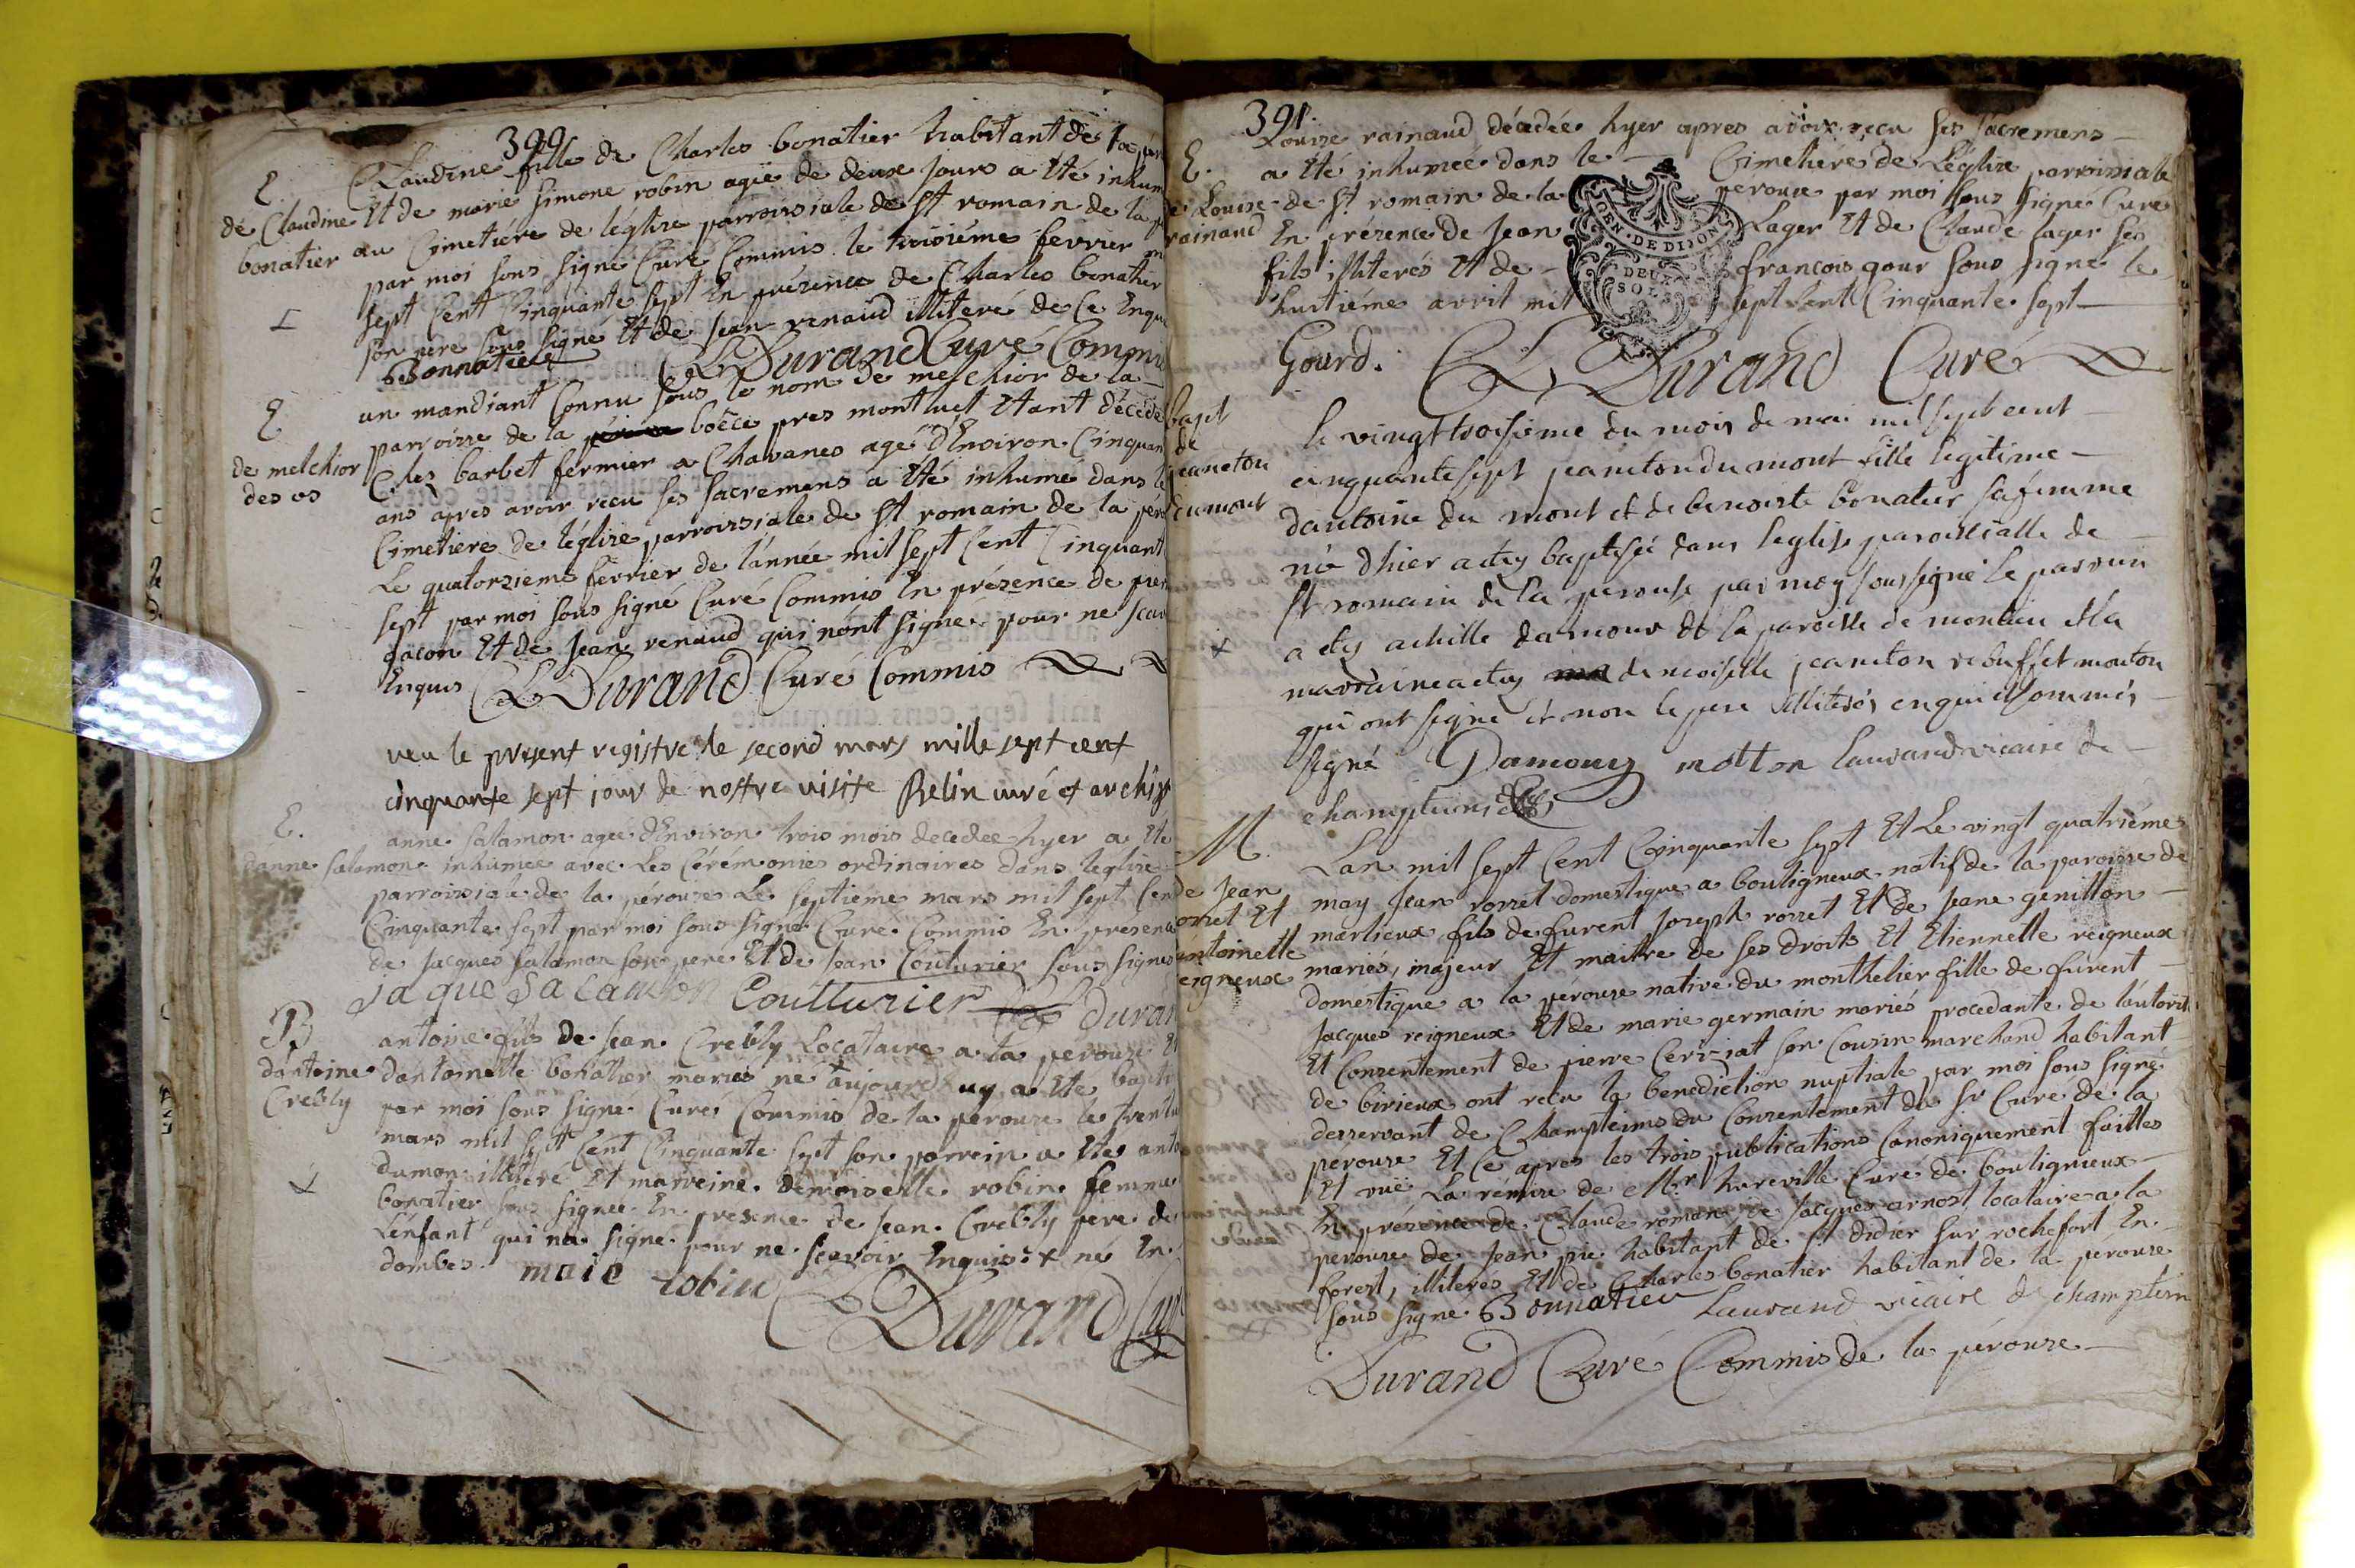 390
E.
de Claudine
bonatier
Claudine fille de Charles bonatier habitant de la
Et de marie simone robin agée de deux jours a Eté inhum
au Cimetiére de léglize parroissiale de St romain de la p
par moi sous signé Curé Commis le troisiéme fevrier
sept Cent Cinquante sept En présence de Charles bonatier
son pere sous signé Et de jean renaud illiteré de Ce Enqu
Bonnatier CL Durand Curé Commis
E
de melchior
des os
un mandiant Connu sous le nom de melchior de la
parroisse de la boëce pres montluel Etant décédé
Ches barbet fermier a Chavanes agé d'Environ Cinquan
ans apres avoir recu ses sacremens a Eté inhumé dans le
Cimetiere de léglize parroissiale de St romain de la pér
Le quatorzieme fevrier de lannée mil sept Cent Cinquant
sept par moi sous signé Curé Commis En présence de pier
gacon Et de jean renaud qui nónt signé pour ne scav
Enquis CL Durand Curé Commis
veu le present registre le second mars mille sept cent
cinquante sept jour de nostre visite Relin curé et archip
E.
danne salamon
anne salamon agée d'Environ trois mois decedee hyer a Eté
inhumee avec Les Cérémonies ordinaires dans leglize
parroissiale de la pérouze Le septieme mars mil sept Cen
Cinquante sept par moi sous signé Curé Commis En presence
de jacques salamon son pere Et de jean Couturier sous signés
jaque Salamon Coutturier Duran
B
dantoine
Crebly
antoine fils de jean Crebly Locataire a la pérouze Et
dantoinette bonatier mariés né aujourdhuy a Eté bapti
par moi sous signé Curé Commis de la perouze le trent
mars mil sept Cent Cinquante sept son parrein a Eté anto
dumon illiteré Et marreine demoiselle robin femme
bonatier sous signée En presence de jean Crebly pere de
Lénfant qui na signé pour ne scavoir Enquis + né En
dombes. maie robin
CL Durand Cur
391.
E.
de Louise
rainaud
Louize rainaud décédée hyer apres avoir recu ses sacremens
a Eté inhumée dans le Cimetiére de Léglize parroissiale
de St romain de la perouze par moi sous signé Curé
En présence de jean Lager Et de Claude lager ses
fils illiterés Et de francois gour sous signé le
huitiéme avril mil sept Cent Cinquante sept
GEN. DE DIJON
DEUX
SOLS
Gourd. CL Durand Curé
bapt
de
jeaneton
dumont
le vingt troisieme du mois de mai mil sept cent
cinquante sept jeaneton du mont fille legitime
dantoine du mont et de benoiste bonatier sa femme
née dhier a etey baptisée dans leglise paroissialle de
St romain de la perouse par moy soussigné le parrain
a etey achille damour de la paroisse de et la
marraine a etey demoiselle jeaneton rebuffet mouton
qui ont signé et non le pere illiterés enquis et sommés
signé Damour motton Laurand vicaire de
champteins
M.
de jean
orret Et
antoinette
eigneux
Lan mil sept Cent Cinquante sept Et Le vingt quatriéme
may jean rorret domestique a bouligneux natif de la paroisse de
marlieux fils de furent joseph rorret Et de jeane genillon
mariés, majeur Et maitre de ses droits Et Etiennette reigneux
doméstique a la pérouze native du monthelier fille de furent
jacques reigneux Et de marie germain mariés procedante de láutorit
Et Consentement de pierre Cerviat son Cousin marchand habitant
de birieux ont recu la benediction nuptiale par moi sous signé
desservant de Champteins du Consentement du Sr Curé de la
perouze Et Ce apres les trois publications Canoniquement faittes
Et vuë La rémise de Mr hureville Curé de bouligneux
En présence de Claude roman, de jacques arnost locataire a la
perouze de jean pie habitant de St didier sur rochefort En
forest, illiterés Et de Charles bonatier habitant de la pérouze
sous signé Bonnatier Laurand vicaire de champtein
Durand Curé Commis de la pérouze